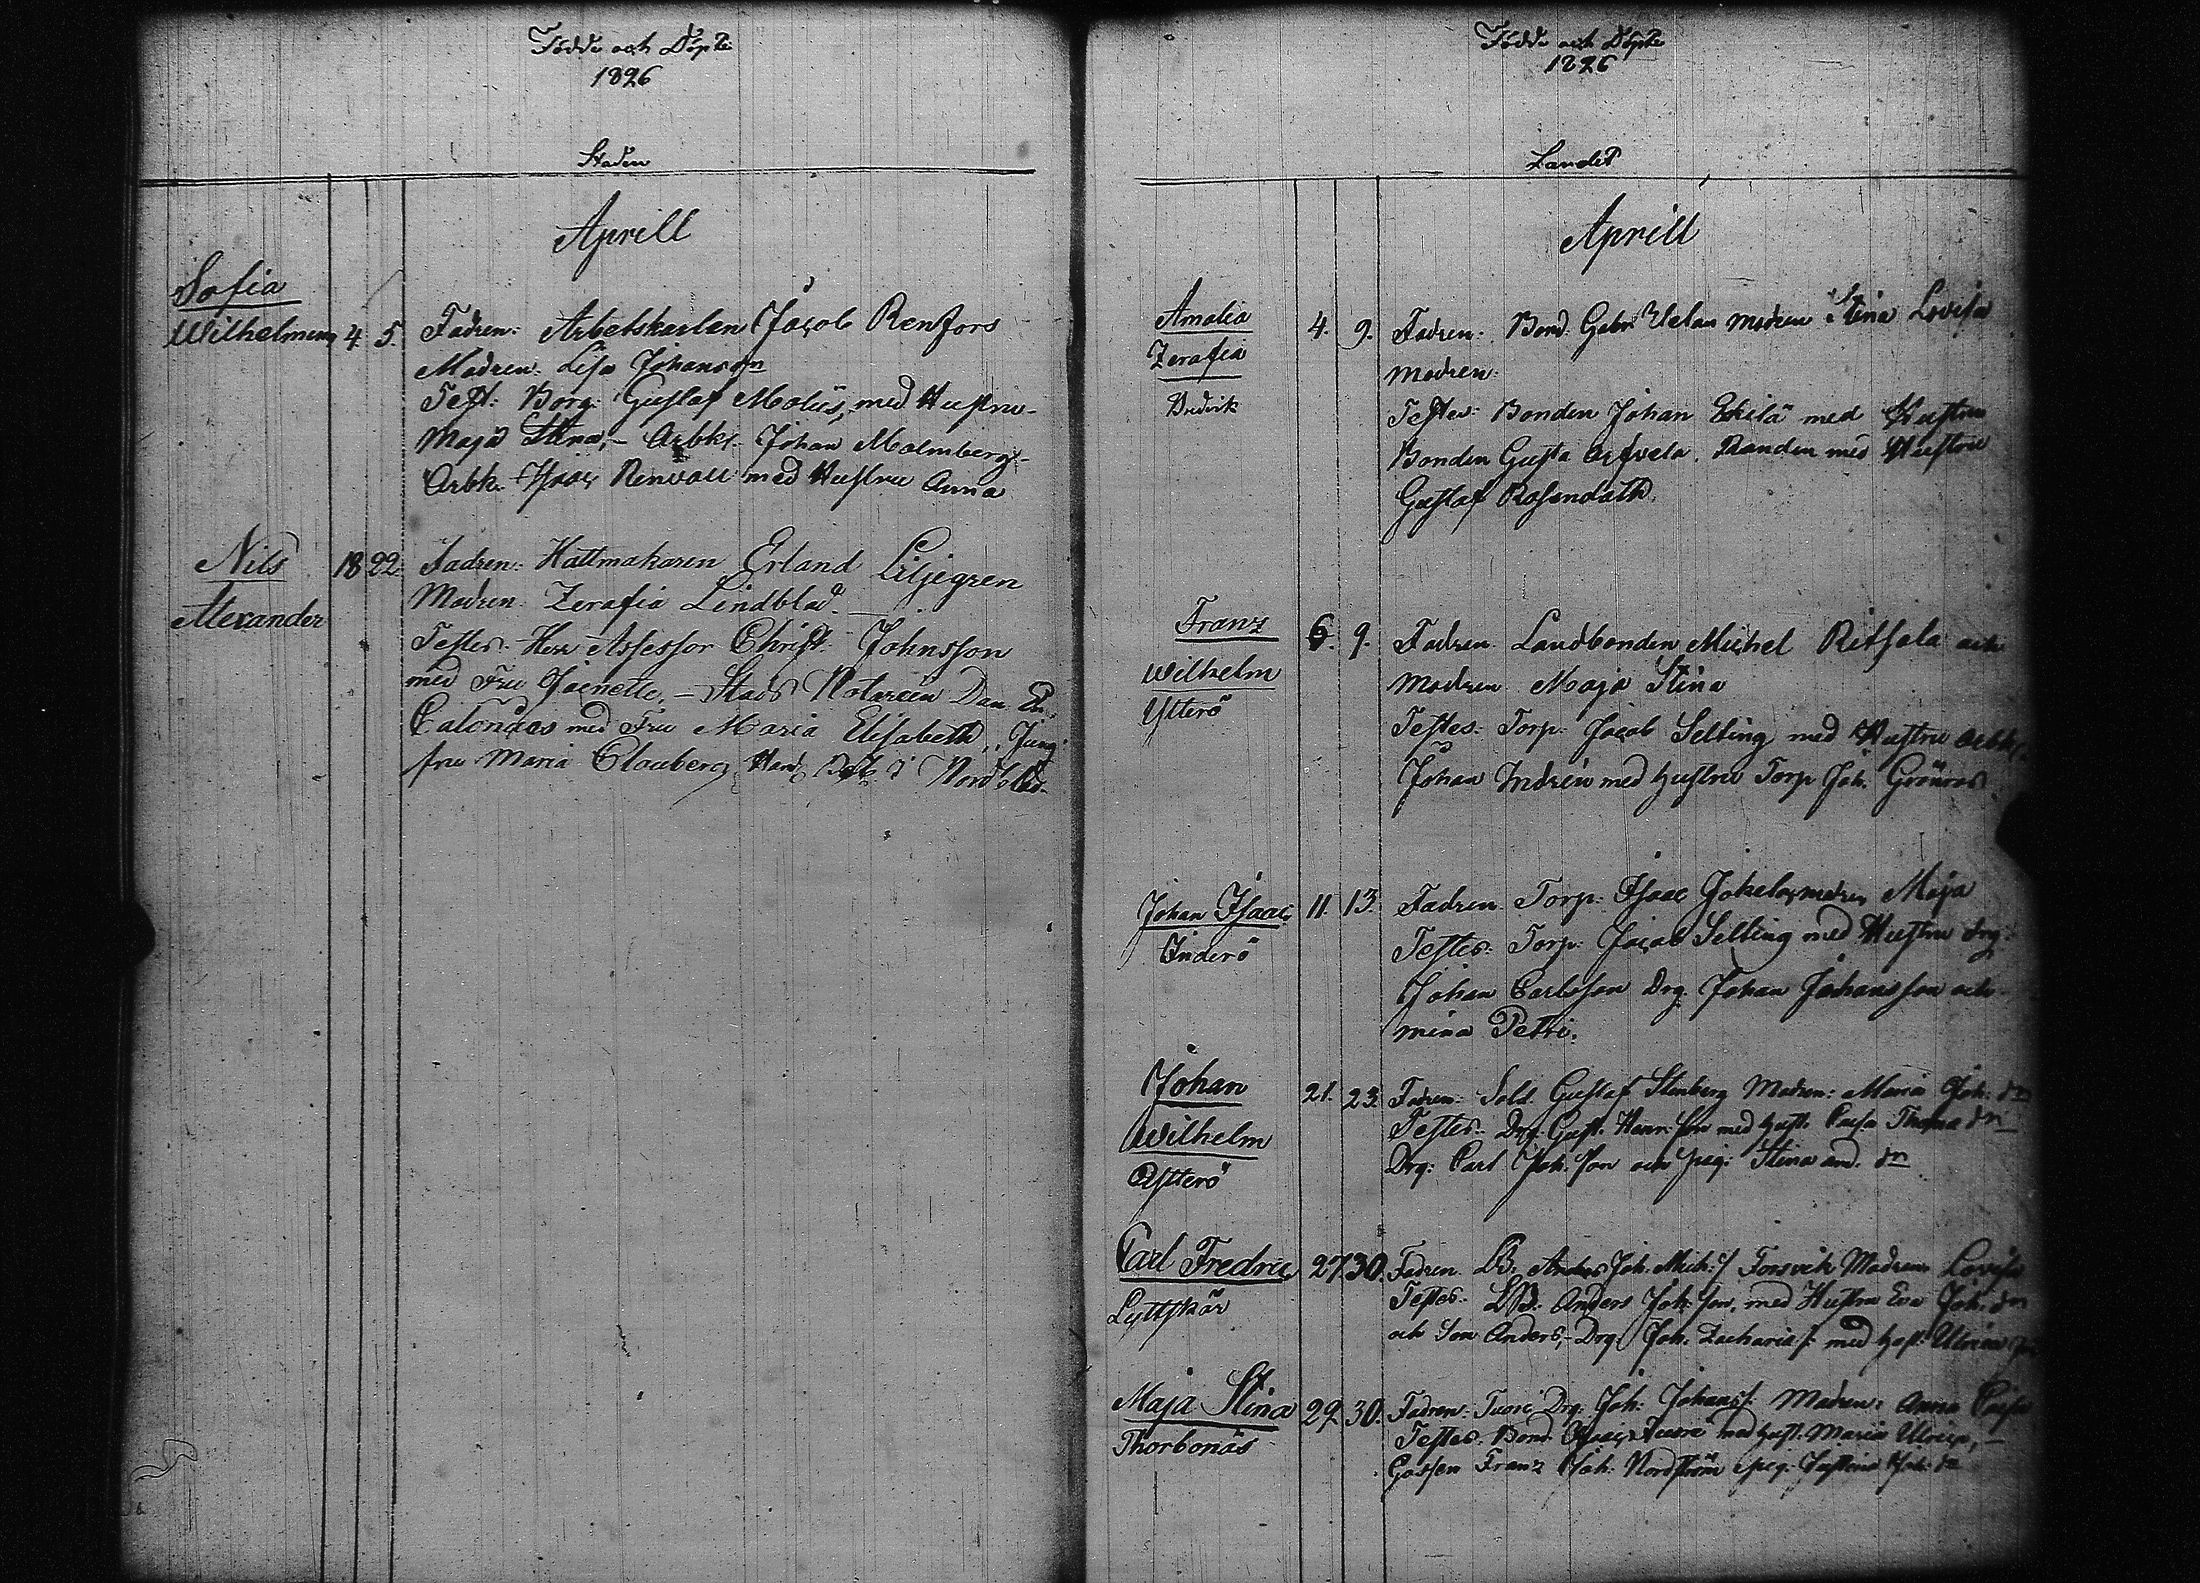 Födde och Döpte
1826
Staden
Aprill
Sofia
Wilhelmina 4. 5. Fadren: Arbetskarlen Jacob Renfors
Modren: Lisa Johansdn
Test: Borg: Gustaf Molüs, med Hustru
Maja Stina, – Arbk: Johan Malmberg
Arbk. Isaac Renvall med Hustru Anna
Nils 18 22. Fadren: Hattmakaren Erland Liljegren
Alexander Modren: Zerafia Lindblad.
Testes: Herr Assessor Christ: Johnsson
med Fru Jeanette, – Stads Notarien Dan.
Calonius med Fru Maria Elisabeth, Jung
fru Maria Clouberg Hand. Nordblad
Födde och Döpte
1826
Landet
Aprill
Amalia 4. 9. Fadren: Bond. Gabr: Uelan modren Stina Lovisa
Zerafia modren:
Bredvik Testes: Bonden Johan Eskilä med Hustru
Bonden Gusta Arfvela. med Hustru
Gustaf Rosendath.
Franz 6. 9. Fadren: Landbonden Michel Ritsala och
Wilhelm modren Maja Stina
Ytterö Testes: Torp: Jacob Selling med Hustru Arbk.
Johan Indrén med hustru Torp Joh. Grönroos
Johan Isaac 11. 13. Fadren: Torp: Isaac Jokela, modren Maja
Inderö Testes: Torp: Jacob Selling med Hustru drg:
Johan Carlsson Drg. Johan Johansson och
mina Petri.
Johan 21. 23. Fadren: Sold. Gustaf Stenberg Modren: Maria Joh: dn
Wilhelm Testes: Drg. Gust. Henr: son med hust. Caisa Thoma dn
Ytterö Drg: Carl Joh. son och pig: Stina And. dn
Carl Fredric 27. 30. Fadren LB: Anders Joh. Mich: s Forsvik Modren Lovisa
Lyttskär Testes: LB: Anders Joh. son, med Hustru Eva Joh. dn
och Son Anders, – Drg. Joh. Zacharias: med hust: Ulrica
Maja Stina 29. 30. Fadren: Tuori Drg: Joh: Johans s: Modren: Anna Caisa
Thorbonäs Testes: Bond. Isaac Tuori med hust. Maria Ulrica, –
Gossen Franz Joh: Nordström pig. Justina Joh: dn